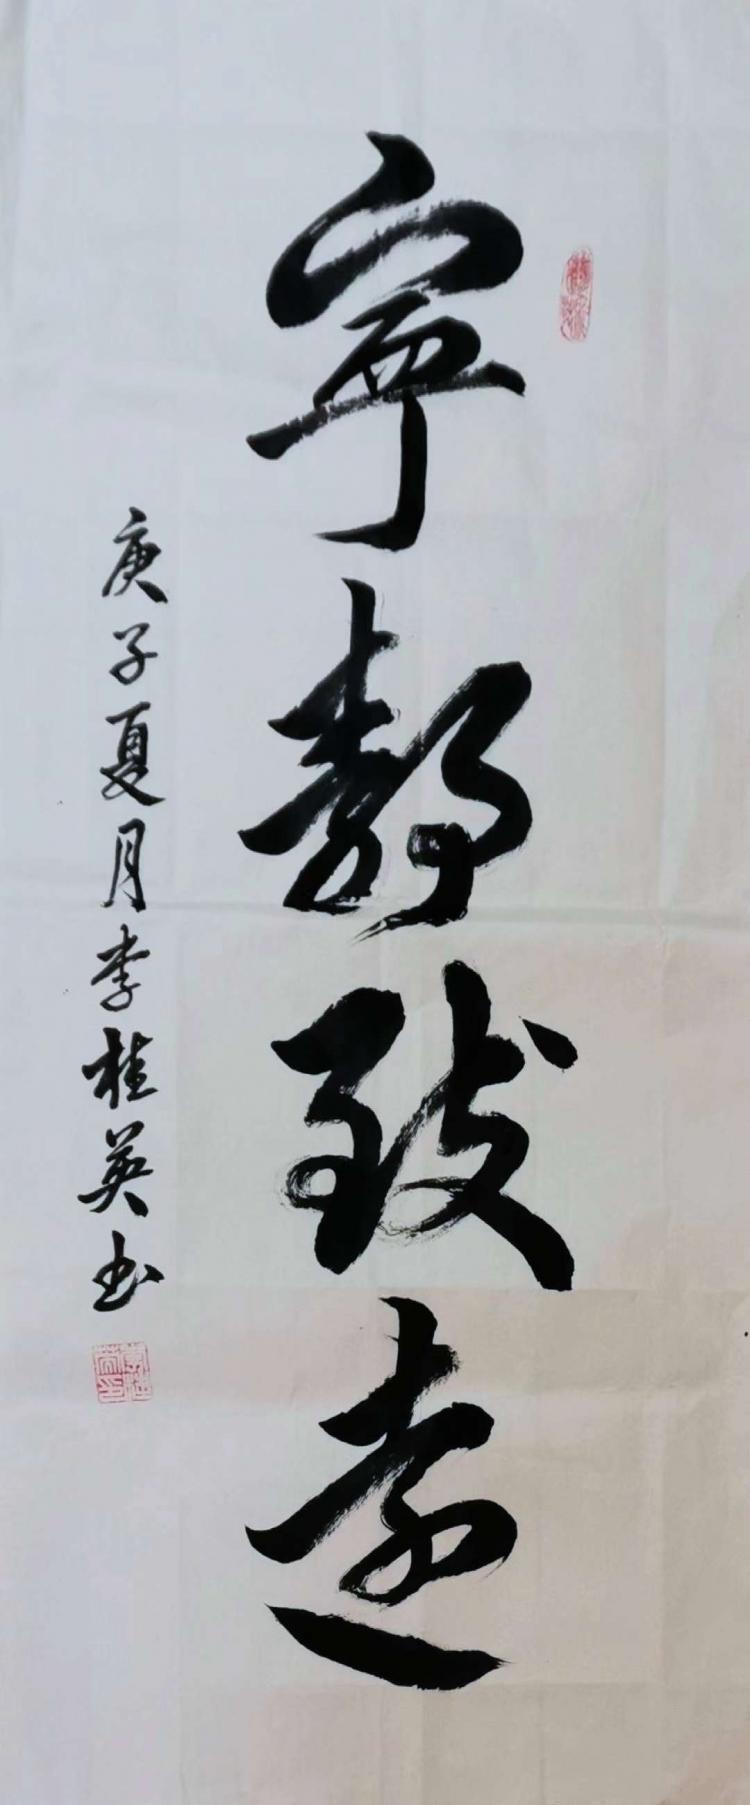 寧静致遠
庚子夏月李桂英书